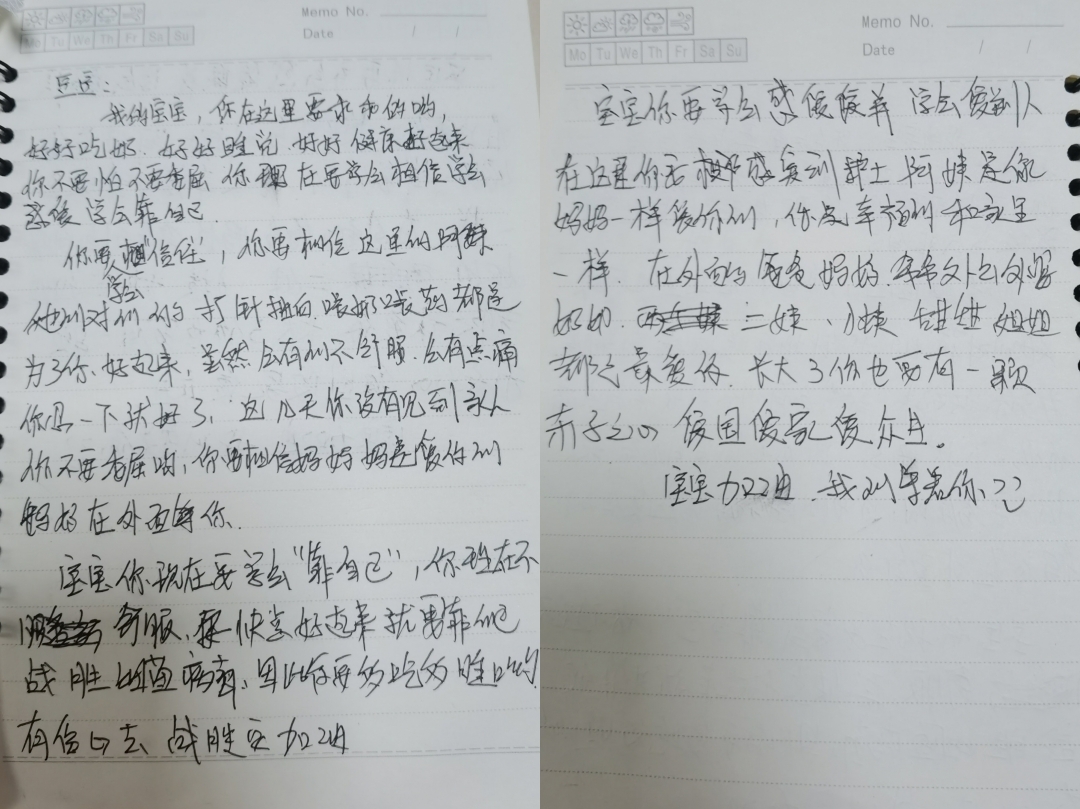 Memo No.
Mo Tu We Th Fr Sa Su
Date / /
豆豆：
我的宝宝，你在这里要乖乖的哟，
好好吃奶、好好睡觉、好好健康好起来
你不要怕不要委屈 你现在要学会相信学会
感受 学会靠自己.
你要学会"信任"，你要相信这里的阿姨
她们对你的打针抽血、喂奶喂药都是
为了你好起来，虽然会有不舒服、会有点痛
你忍一下就好了，这几天你没有见到家人
你不要委屈哟，你要相信妈妈 妈是爱你的
妈妈在外面等你.
宝宝你现在要学会"靠自己"，你现在不
舒服、要快点好起来就要靠自己
战胜 病毒，因此你要多吃多睡哟
有信心去战胜它 加油
Memo No.
Mo Tu We Th Fr Sa Su
Date / /
宝宝你要学会感受 学会爱别人
在这里你要感受到护士阿姨是像
妈妈一样爱你的，你是幸福的和家里
一样. 在外面的爸爸妈妈、爷爷 外公外婆
奶奶、三姨、小姨 甜甜姐姐
都是最爱你. 长大了你也要有一颗
赤子之心 爱国爱家爱众生。
宝宝加油、我们等着你